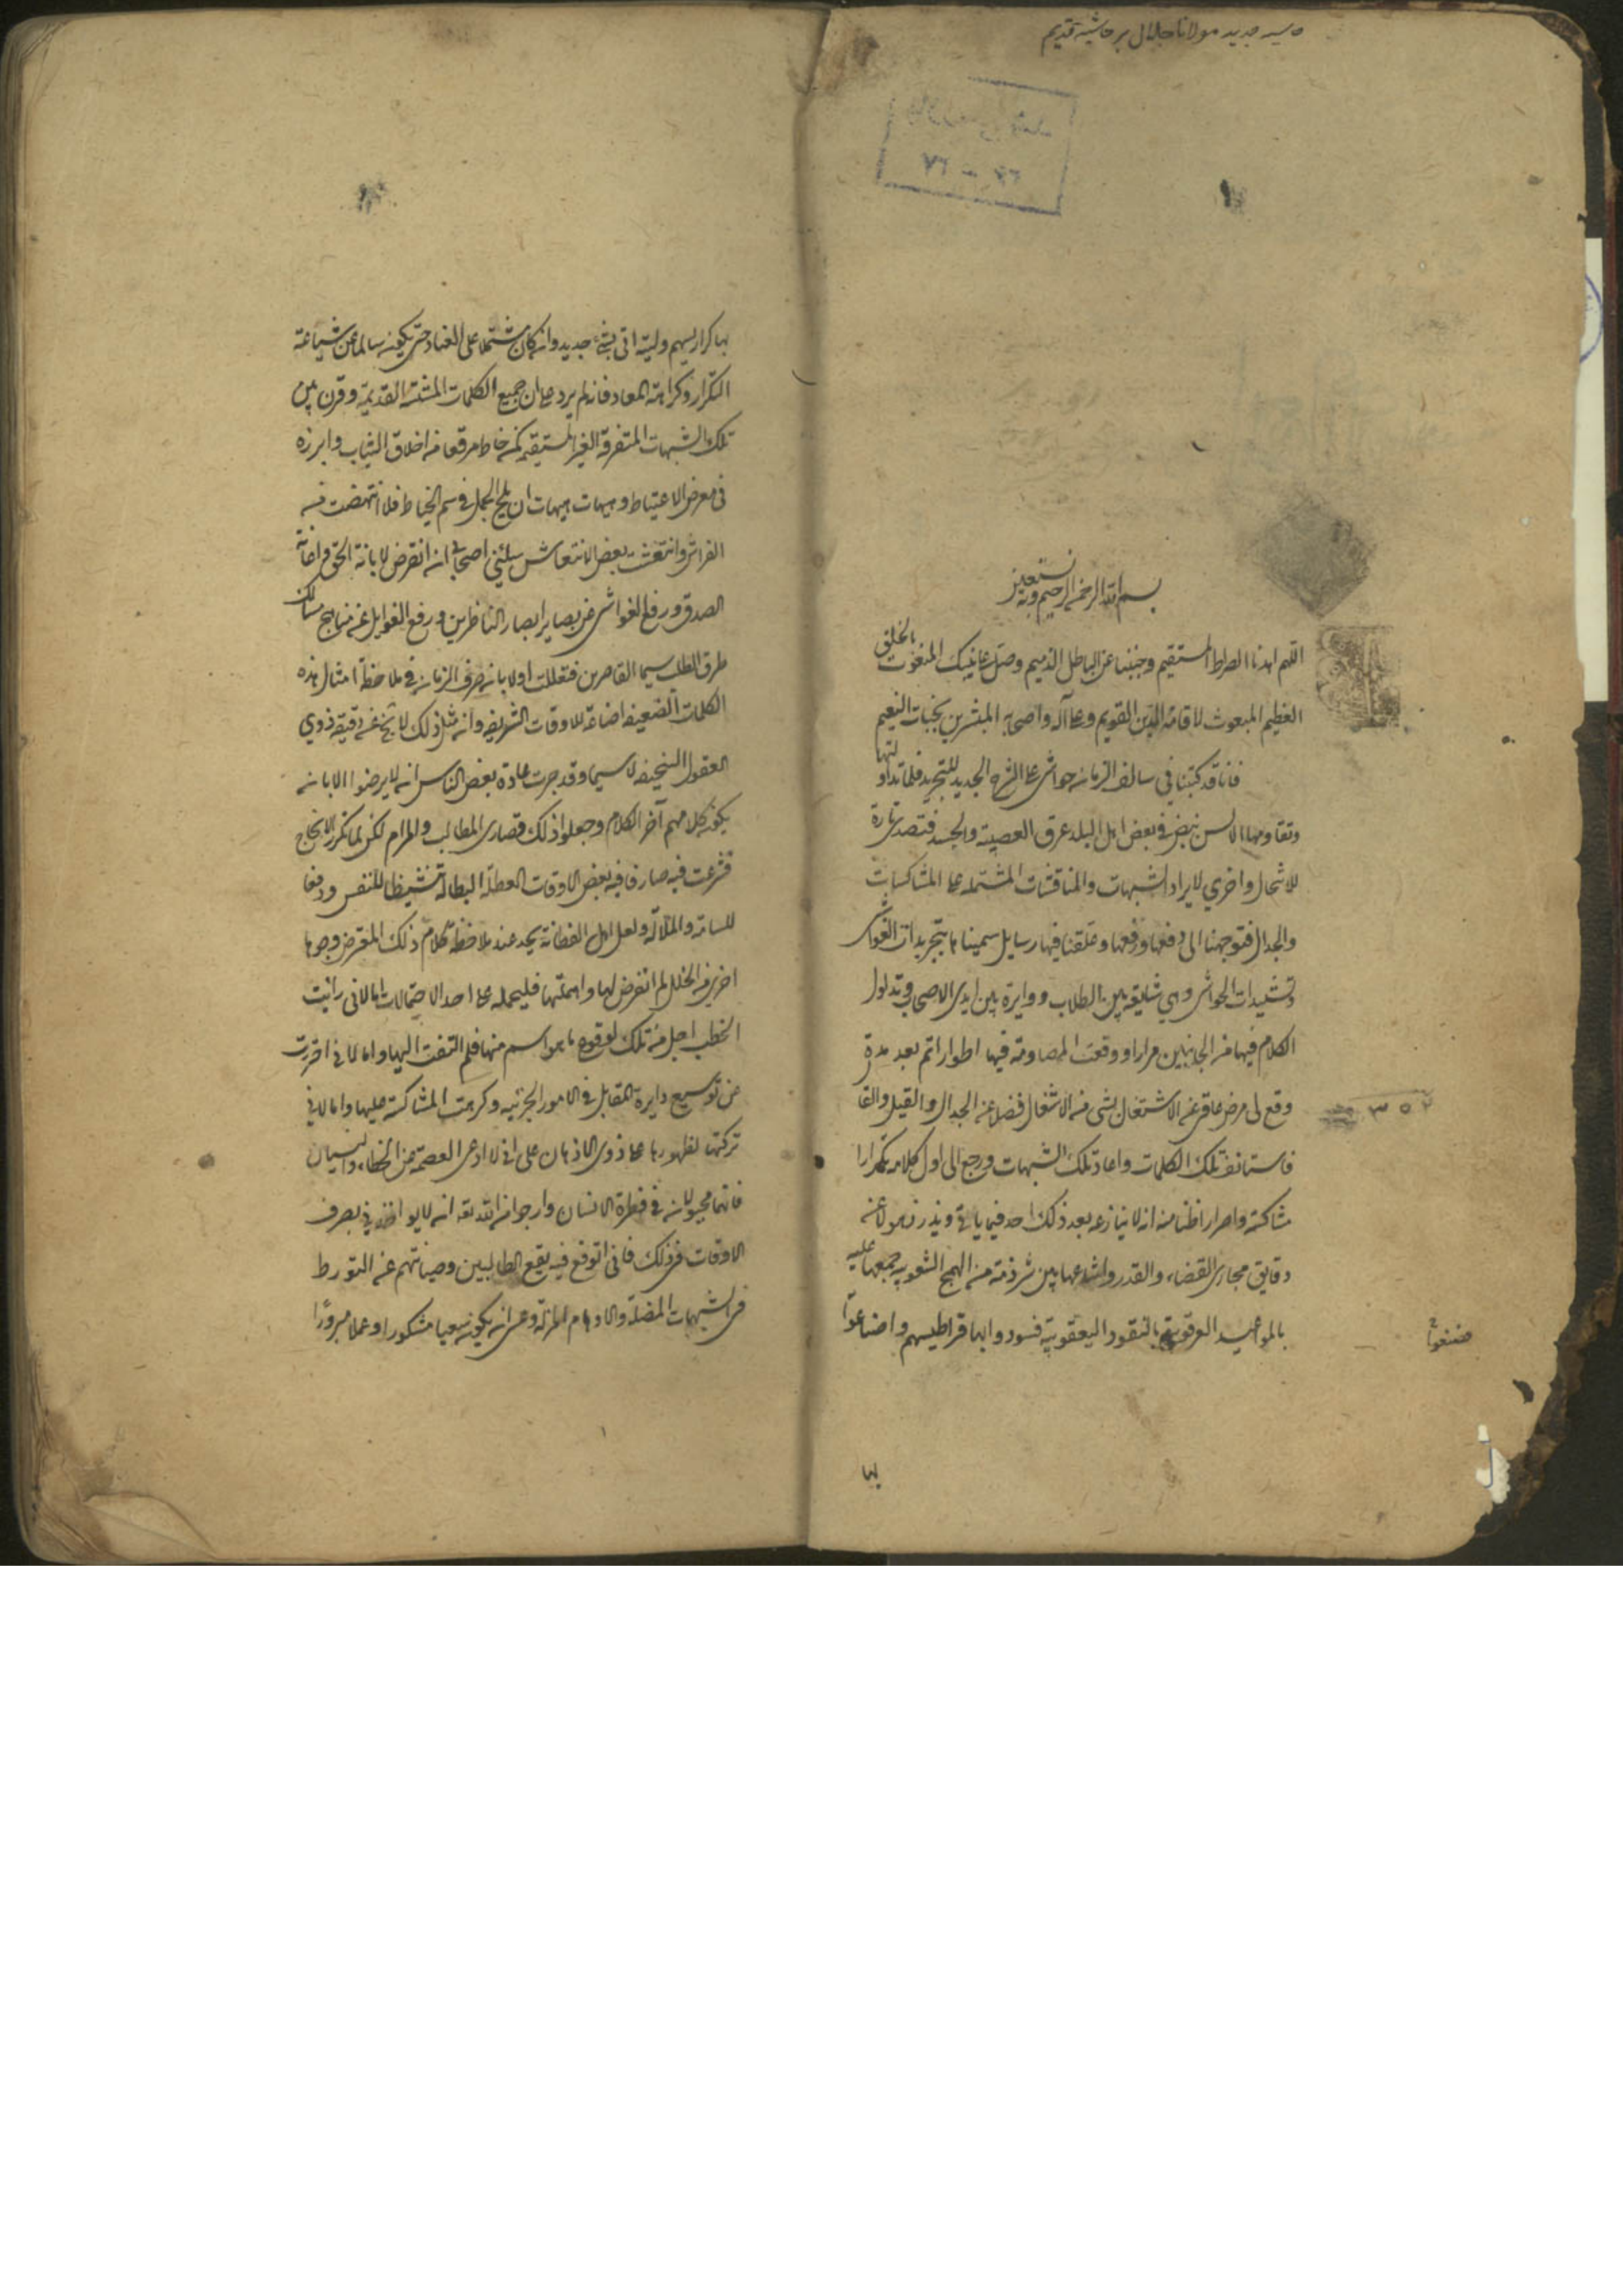 حاسیه جدید مولانا جلال بر حاشیه قدیم
٢٧ - ٢٧
بسم الله الرحمن الرحيم وبه نستعين
اللهم اهدنا الصراط المستقيم وجنبنا عن الباطل الذميم وصل على نبيك المنعوت بالخلق
العظيم المبعوث لاقامة الدين القويم وعلى آله واصحابه المبشرين بجنات النعيم
فانا قد كتبنا في سالف الزمان حواشي على الشرح الجديد للتجريد فلما تداولتها
وتقاومها الالسن نبض في بعض اهل البلد عرق العصبية والحسد فتصدى تارة
للانتحال واخرى لايراد الشبهات والمناقشات المشتملة على المشاكسات
والجدال فتوجهنا الى دفعها ورفعها وعلقنا فيها رسايل سميناها بتجريدات الغواشي
وتشييدات الحواشي وهي شايعة بين الطلاب ودايرة بين ايدي الاصحاب وتداول
الكلام فيها من الجانبين مرارا ووقعت المصادمة فيها اطوارا ثم بعد مدة
وقع لي مرض عاقني عن الاشتغال بشي من الاشغال فضلا عن الجدال والقيل والقال
فاستانف تلك الكلمات واعاد تلك الشبهات ورجع الى اول كلامه تكرارا
مشاكسة واصرارا ظنا منه انه لا ينازعه بعد ذلك احد فيما ياتي ويذر ذهولا عن
دقايق مجاري القضاء والقدر واشاعها بين شرذمة من الهمج الشعوبية جمعها عليه
بالمواعيد العرقوبية بالنقود اليعقوبية فسودوا بها قراطيسهم واضاعوا
ضيعوا
٣٥٢
بها
بها كراريسهم وليته اتى بشيء جديد وان كان مشتملا على العناد حتى يكون سالما عن شناعة
التكرار وكراهة المعاد فانه لم يزد على ان جمع الكلمات المشتتة القديمة وقرن بين
تلك الشبهات المتفرقة الغير المستقيمة كمن خاط مرقعا من اخلاق الثياب وابرزه
في معرض الاعتباط وهيهات هيهات ان يلج الجمل في سم الخياط فلما انتهضت من
الفراش وانتعشت بعض الانتعاش سالني اصحابي ان اتعرض لابانة الحق واضاءة
الصدق ورفع الغواشي عن بصاير ابصار الناظرين ورفع الغوايل عن مناهج مسالك
طرق الطلب سيما القاصرين فتعللت اولا بان صرف الزمان في ملاحظة امثال هذه
الكلمات الضعيفة اضاعة للاوقات الشريفة وان مثل ذلك لا يخفى عن دقيقة ذوي
العقول السخيفة لا سيما وقد جرت عادة بعض الناس ان لا يرضوا الا بان
يكون كلامهم آخر الكلام وجعلوا ذلك قصارى المطالب والمرام لكن لما تكرر الالحاح
فشرعت فيه صارفا فيه بعض الاوقات العطلة البطالة تنشيطا للنفس ودفعا
للسامة والملالة ولعل اهل الفطانة يجد عند ملاحظة كلام ذلك المعترض وجوها
اخرى من الخلل لم اتعرض لها واهملتها فليحمله على احد الاحتمالات اما لاني رايت
الخطب اجل من تلك لوقوع ما هو اسم منها فلم التفت اليها واما لاني احترزت
عن توسيع دايرة التقابل في الامور الجزئية وكرهت المشاكسة عليها واما لاني
تركتها لظهورها على ذوي الاذهان على اني لا ادعي العصمة عن الخطاء والنسيان
فانهما مجبولان في فطرة الانسان وارجو من الله تعه ان لا يواخذني بصرف
الاوقات في ذلك فاني اتوقع فيه نفع الطالبين وصيانتهم عن التورط
في الشبهات المضلة والاوهام المزلة وعسى ان يكون سعيا مشكورا وعملا مبرورا